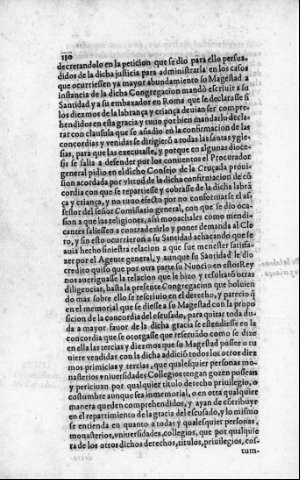 130
decretandolo en la peticion que se dio para ello persua-
didos de la dicha justicia para administrarla en los casos
que ocurriessen ya mayor abundamiento su Magestad a
instancia de la dicha Congregacion mandò escriuir a su
Santidad y a su embaxador en Roma que se declarasse si
los diezmos de la labrança y criança deuian ser compre-
hendidos en esta gracia y tuuo por bien mandarlo decla-
rar con clausula que se añadio en la confirmacion de las
concordias y venidas se dirigierõ a todas las santas ygle-
sias, para que las executasse, y porque en algunas dioce-
sis se salia a defender por los conuentos el Procurador
general pidio en el dicho Consejo de la Cruçada prouis-
sion acordada por virtud de la dicha confirmacion de cõ
cordia con que se repartiesse y cobrasse de la dicha labrã
ça y criança, y no tuuo efecto por no conformarse el as-
sessor del señor Comissario general, con que se dio oca-
sion a que las religiones, assi monachales como mendi-
cantes saliessen a contradezirlo y poner demanda al Cle-
ro, y sin esto ocurrieron a su Santidad achacando que se
auia hecho siniestra relacion a que fue menester satisfa-
zer por el Agente general, y aunque su Santidad le dio
credito quiso que por otra parte su Nuncio en estos Rey
nos aueriguasse la relacion que le hizo y resultarõ otras
diligencias, hasta la presente Congregacion que boluien
do mas sobre ello se restituyo en el derecho, y parecio q̃
en el memorial que se diesse a su Magestad con la propo
sicion de la concordia del escusado, para quitar toda du-
da a mayor fauor de la dicha gracia se estendiesse en la
concordia que se otorgasse que resultado como se dize
en ella las tercias y diezmos que su Magestad possee o tu
uiere vendidas con la dicha addiciõ todos los otros diez
mos primicias y tercias, que qualesquier personas mo-
nasterios vniuersidades Collegios tengan gozen possean
y periciuan por qualquier titulo derecho priuilegio, o
costumbre aunque sea inmemorial, o en otra qualquier
manera queden comprehendidos, y ayan de escriuirse
en el repartimiento de la gracia del escusado, y lo mismo
se entienda en quanto a todas y qualesquier personas,
monasterios, vniuersidades, collegios, que por qualquie
ra de los otros dichos derechos, titulos, priuilegios, cos-
tum-